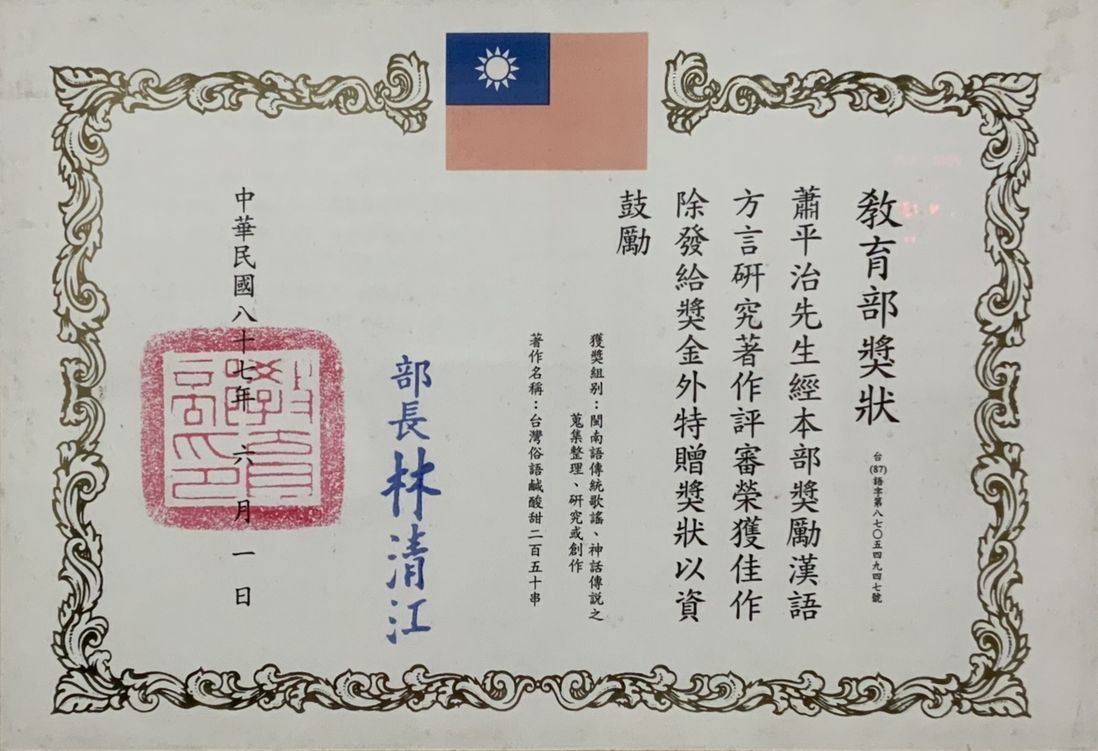 教育部獎狀
台(87)語字第八七〇五四九四七號
蕭平治先生經本部獎勵漢語
方言研究著作評審榮獲佳作
除發給獎金外特贈獎狀以資
鼓勵
獲獎組別：閩南語傳統歌謠、神話傳說之
蒐集整理、研究或創作
著作名稱：台灣俗語鹹酸甜二百五十串
部長林清江
中華民國八十七年六月一日